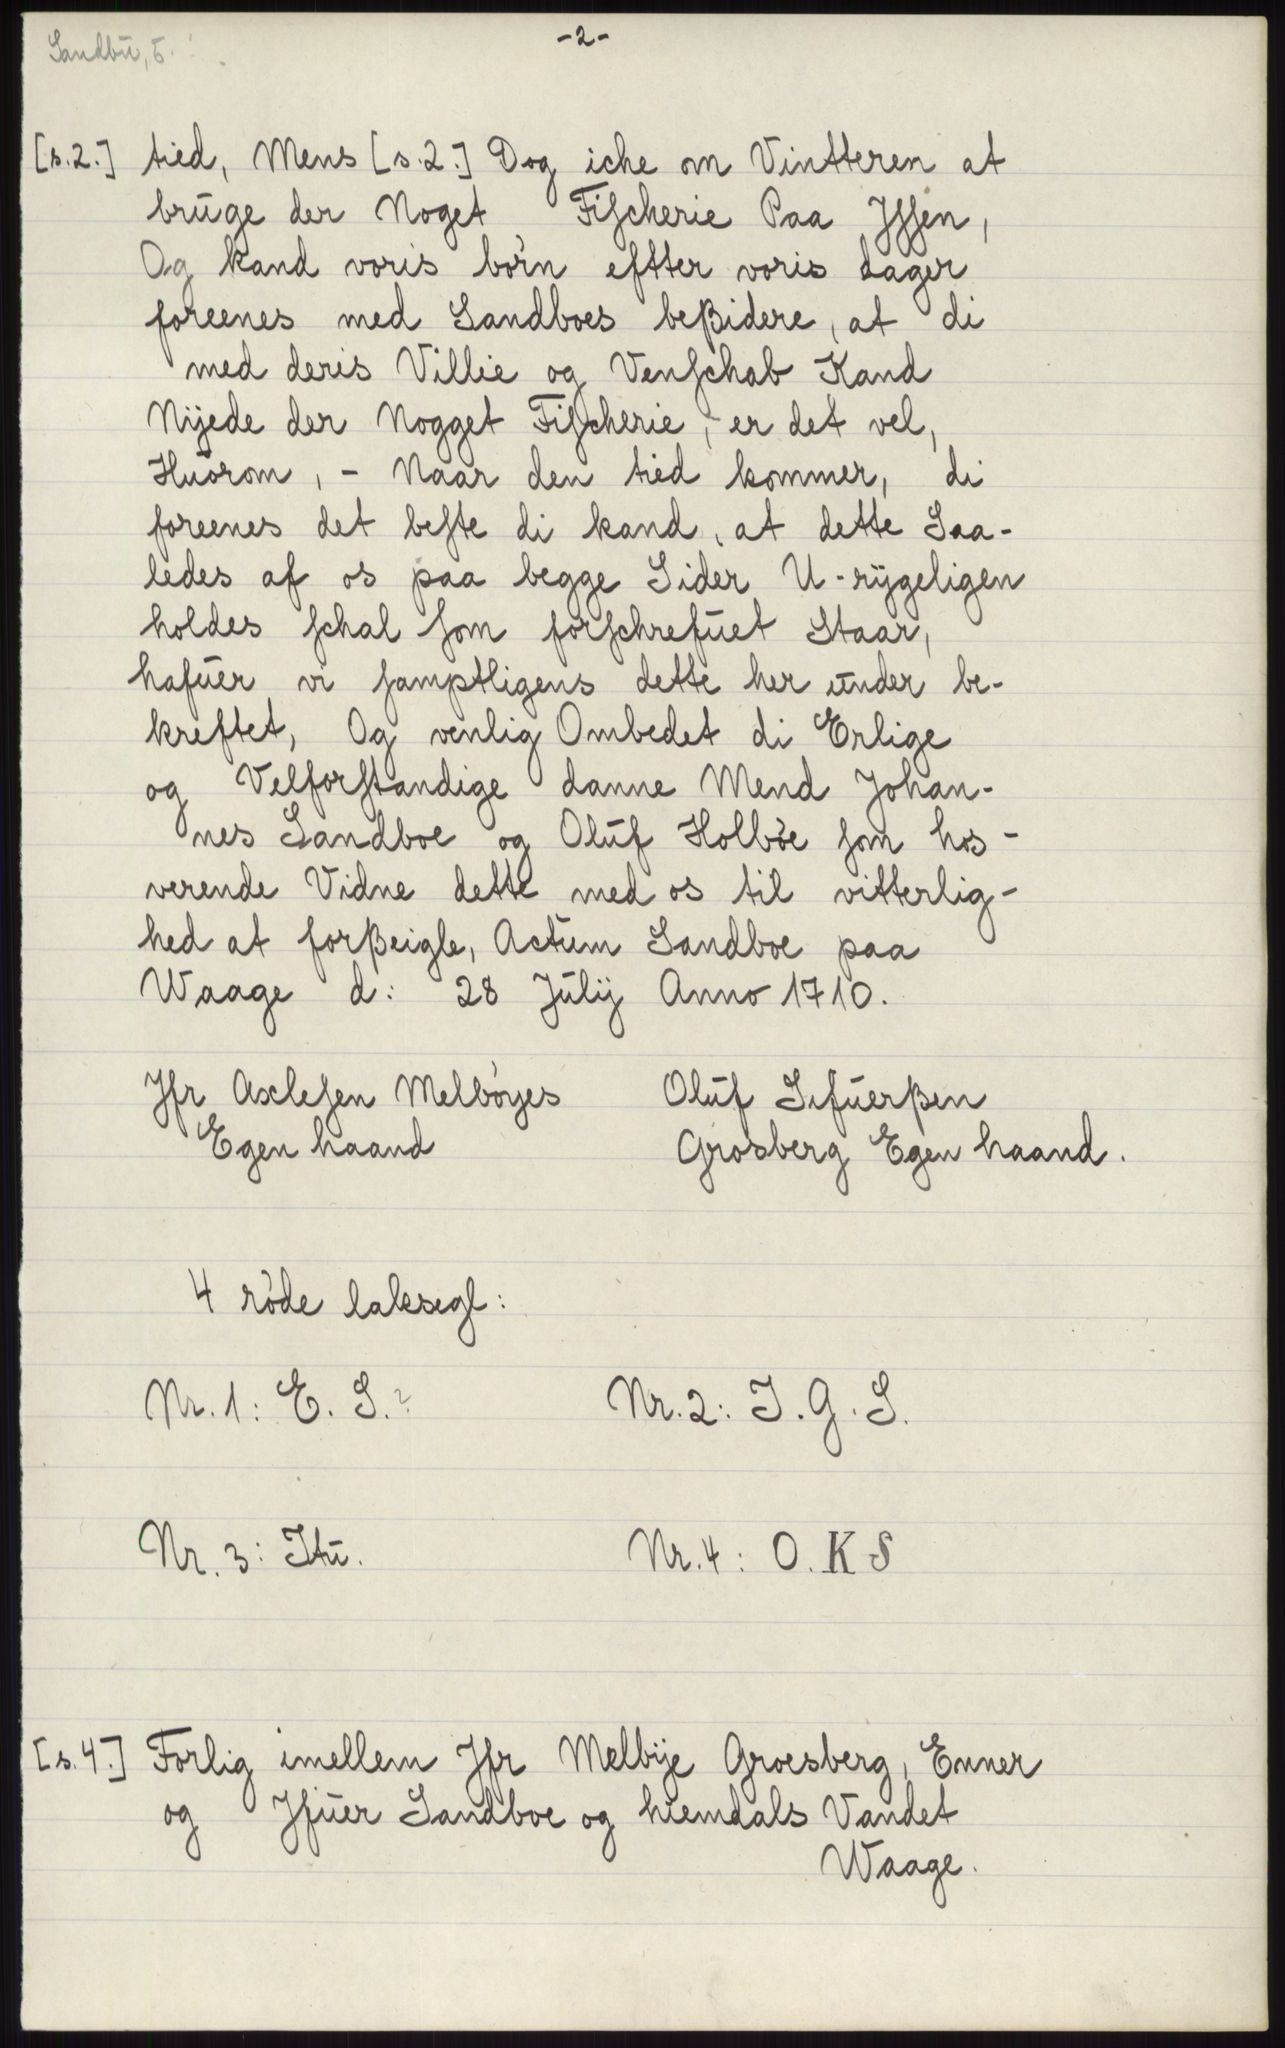 Sandbū, 5.
-2-
[s.2.] tied, Mens [s.2.] Dog iche om Vintteren at
brūge der Noget Fiſcherie Paa Jſſen,
Og kand voris børn eftter voris dager
foreenes med Sandboes beßidere, at di
med deris Villie og Venſchab Kand
Nÿede der Nogget Fiſcherie, er det vel,
Hūorom, - Naar den tied kommer, di
foreenes det beſte di kand, at dette Saa-
ledes af os paa begge Sider U-rÿgeligen
holdes ſchal ſom forſchrefūet Staar,
hafūer vi ſamptligens dette her ūnder be-
kreftet, Og venlig Ombedet di Erlige
og Velforſtandige danne Mend Johan-
nes Sandboe og Olūf Holbøe ſom hos-
verende Vidne dette med os til vitterlig-
hed at forßeigle, Actūm Sandboe paa
Waage d: 28 Jūlÿ Anno 1710.
Jfr Axleſen Melbøyes Olūf Sifūerßen
Egen haand Grosberg Egen haand.
4 røde laksegl:
Nr. 1: E. S.? Nr. 2: J. G. S.
Nr. 3: Jtū. Nr. 4: O. K S
[s.4.] Forlig imellem Jfr Melbÿe Groesberg, Enner
og Jfūer Sandboe og hiemdals Vandet
Waage.